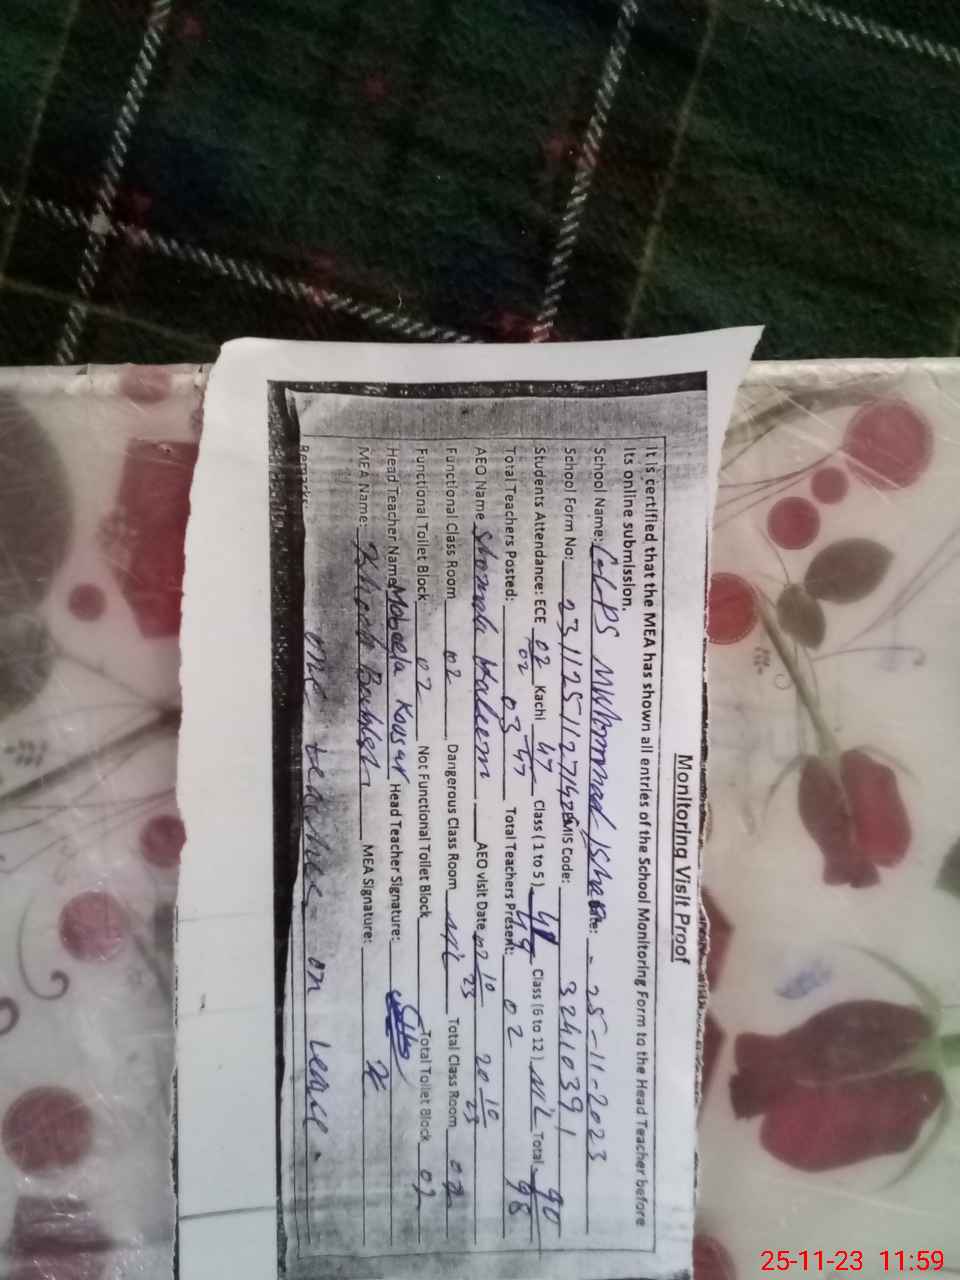 Monitoring Visit Proof
It is certified that the MEA has shown all entries of the School Monitoring Form to the Head Teacher before
its online submission.
School Name: GGPS Muhammad Ishaq Date: - 25-11-2023
School Form No: 23112511271428 EMIS Code: 32410391
Students Attendance: ECE 02 Kachi 47 Class (1 to 5) 41 Class (6 to 12) Nil Total 90
02 47 49 98
Total Teachers Posted: 03 Total Teachers Present: 02
AEO Name AEO visit Date 02 10/23 20 10/23
Functional Class Room 02 Dangerous Class Room Nil Total Class Room 02
Functional Toilet Block 02 Not Functional Toilet Block Total Toilet Block 02
Head Teacher Name Kousar Head Teacher Signature:
MEA Name: MEA Signature:
Remarks
one teacher on leave.
25-11-23 11:59